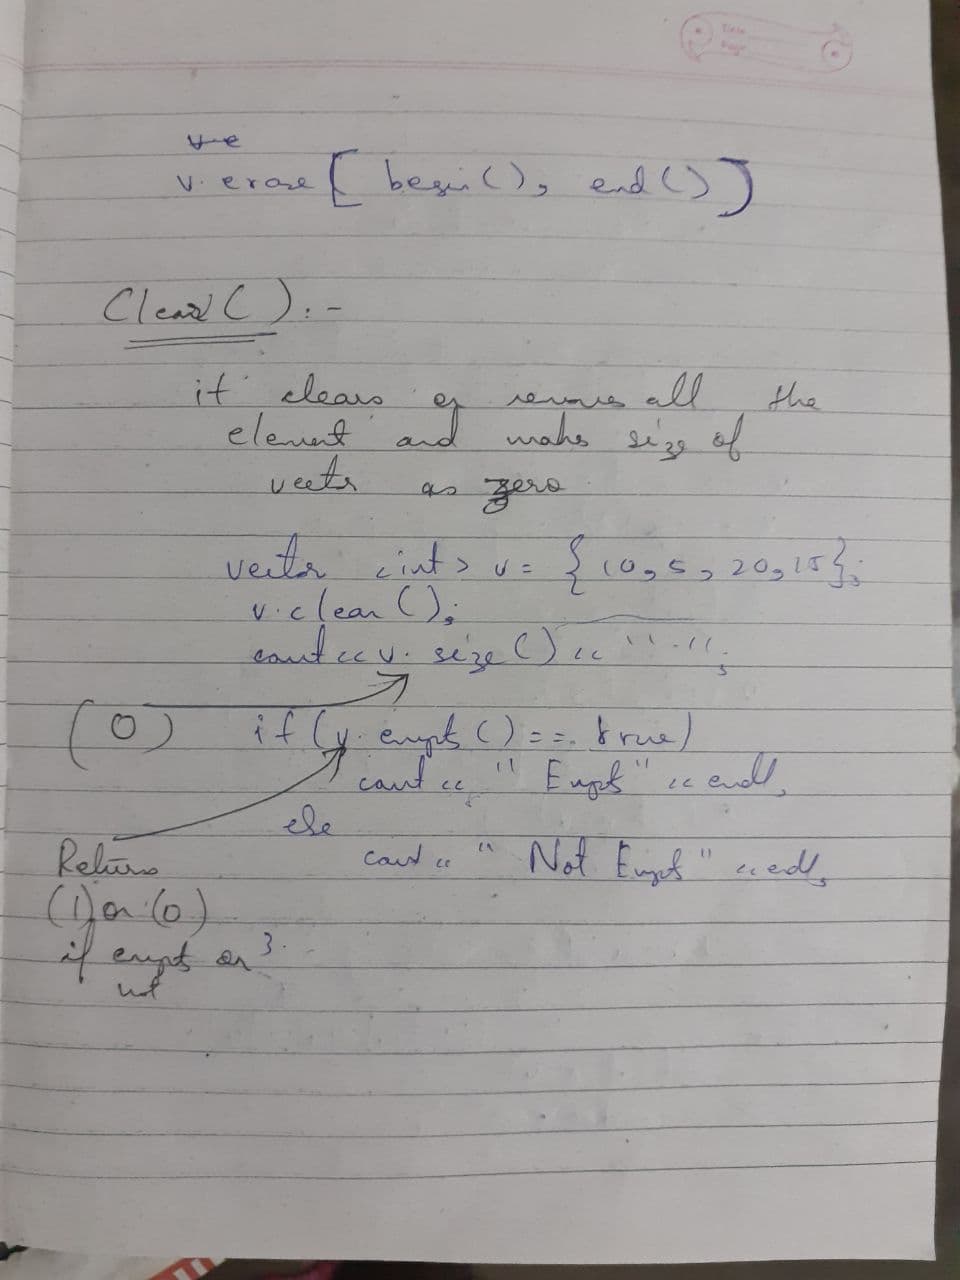 Date
Page
ve
v. erase [ begin(), end() )
Clear() :-
it clears or removes all the
element and make size of
vector as zero
vector <int> v = { 10, 5, 20, 15};
v.clear();
cout << v. size() << " ";
(0) if (v. empty() == true)
cout << " Empty" << endl;
else
cout << " Not Empty" << endl;
Returns
(1) or (0)
if empty or }
not